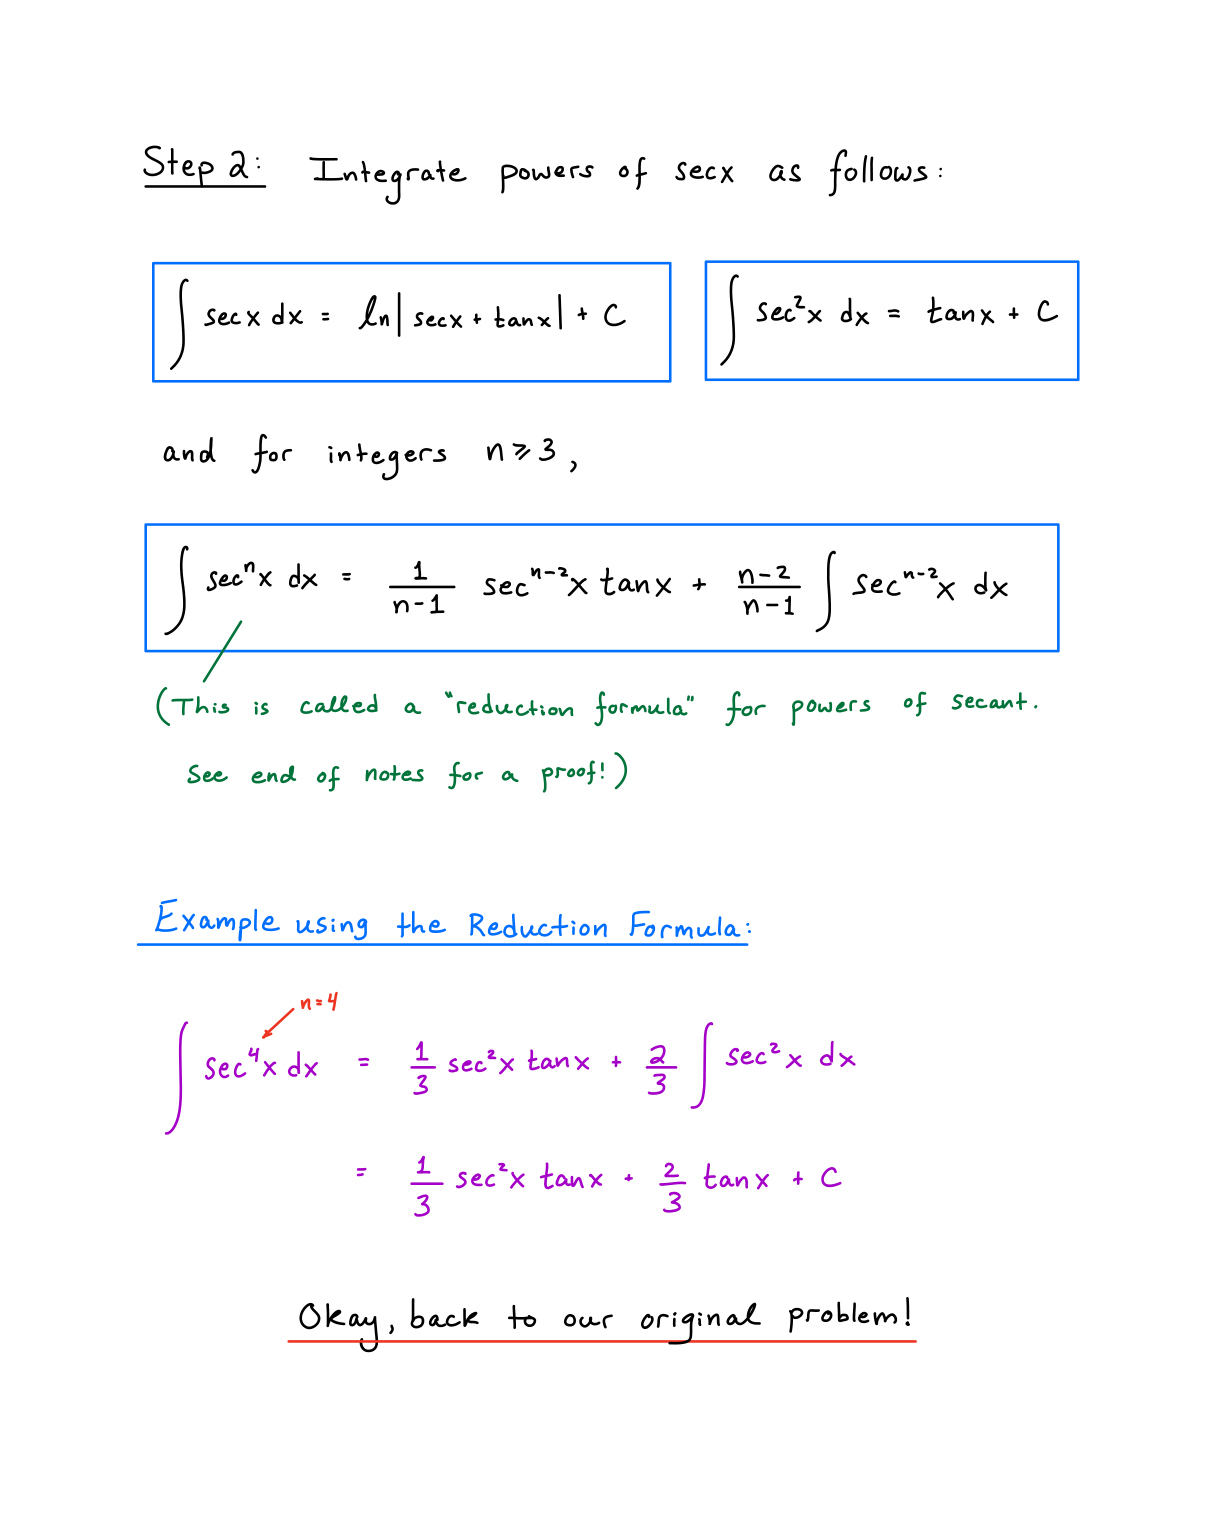 Step 2: Integrate powers of secx as follows:
∫ secx dx = ln|secx + tanx| + C
∫ sec²x dx = tanx + C
and for integers n ≥ 3,
∫ secⁿx dx = 1/(n-1) secⁿ⁻²x tanx + (n-2)/(n-1) ∫ secⁿ⁻²x dx
(This is called a "reduction formula" for powers of secant.
See end of notes for a proof!)
Example using the Reduction Formula:
n=4
∫ sec⁴x dx = 1/3 sec²x tanx + 2/3 ∫ sec²x dx
= 1/3 sec²x tanx + 2/3 tanx + C
Okay, back to our original problem!